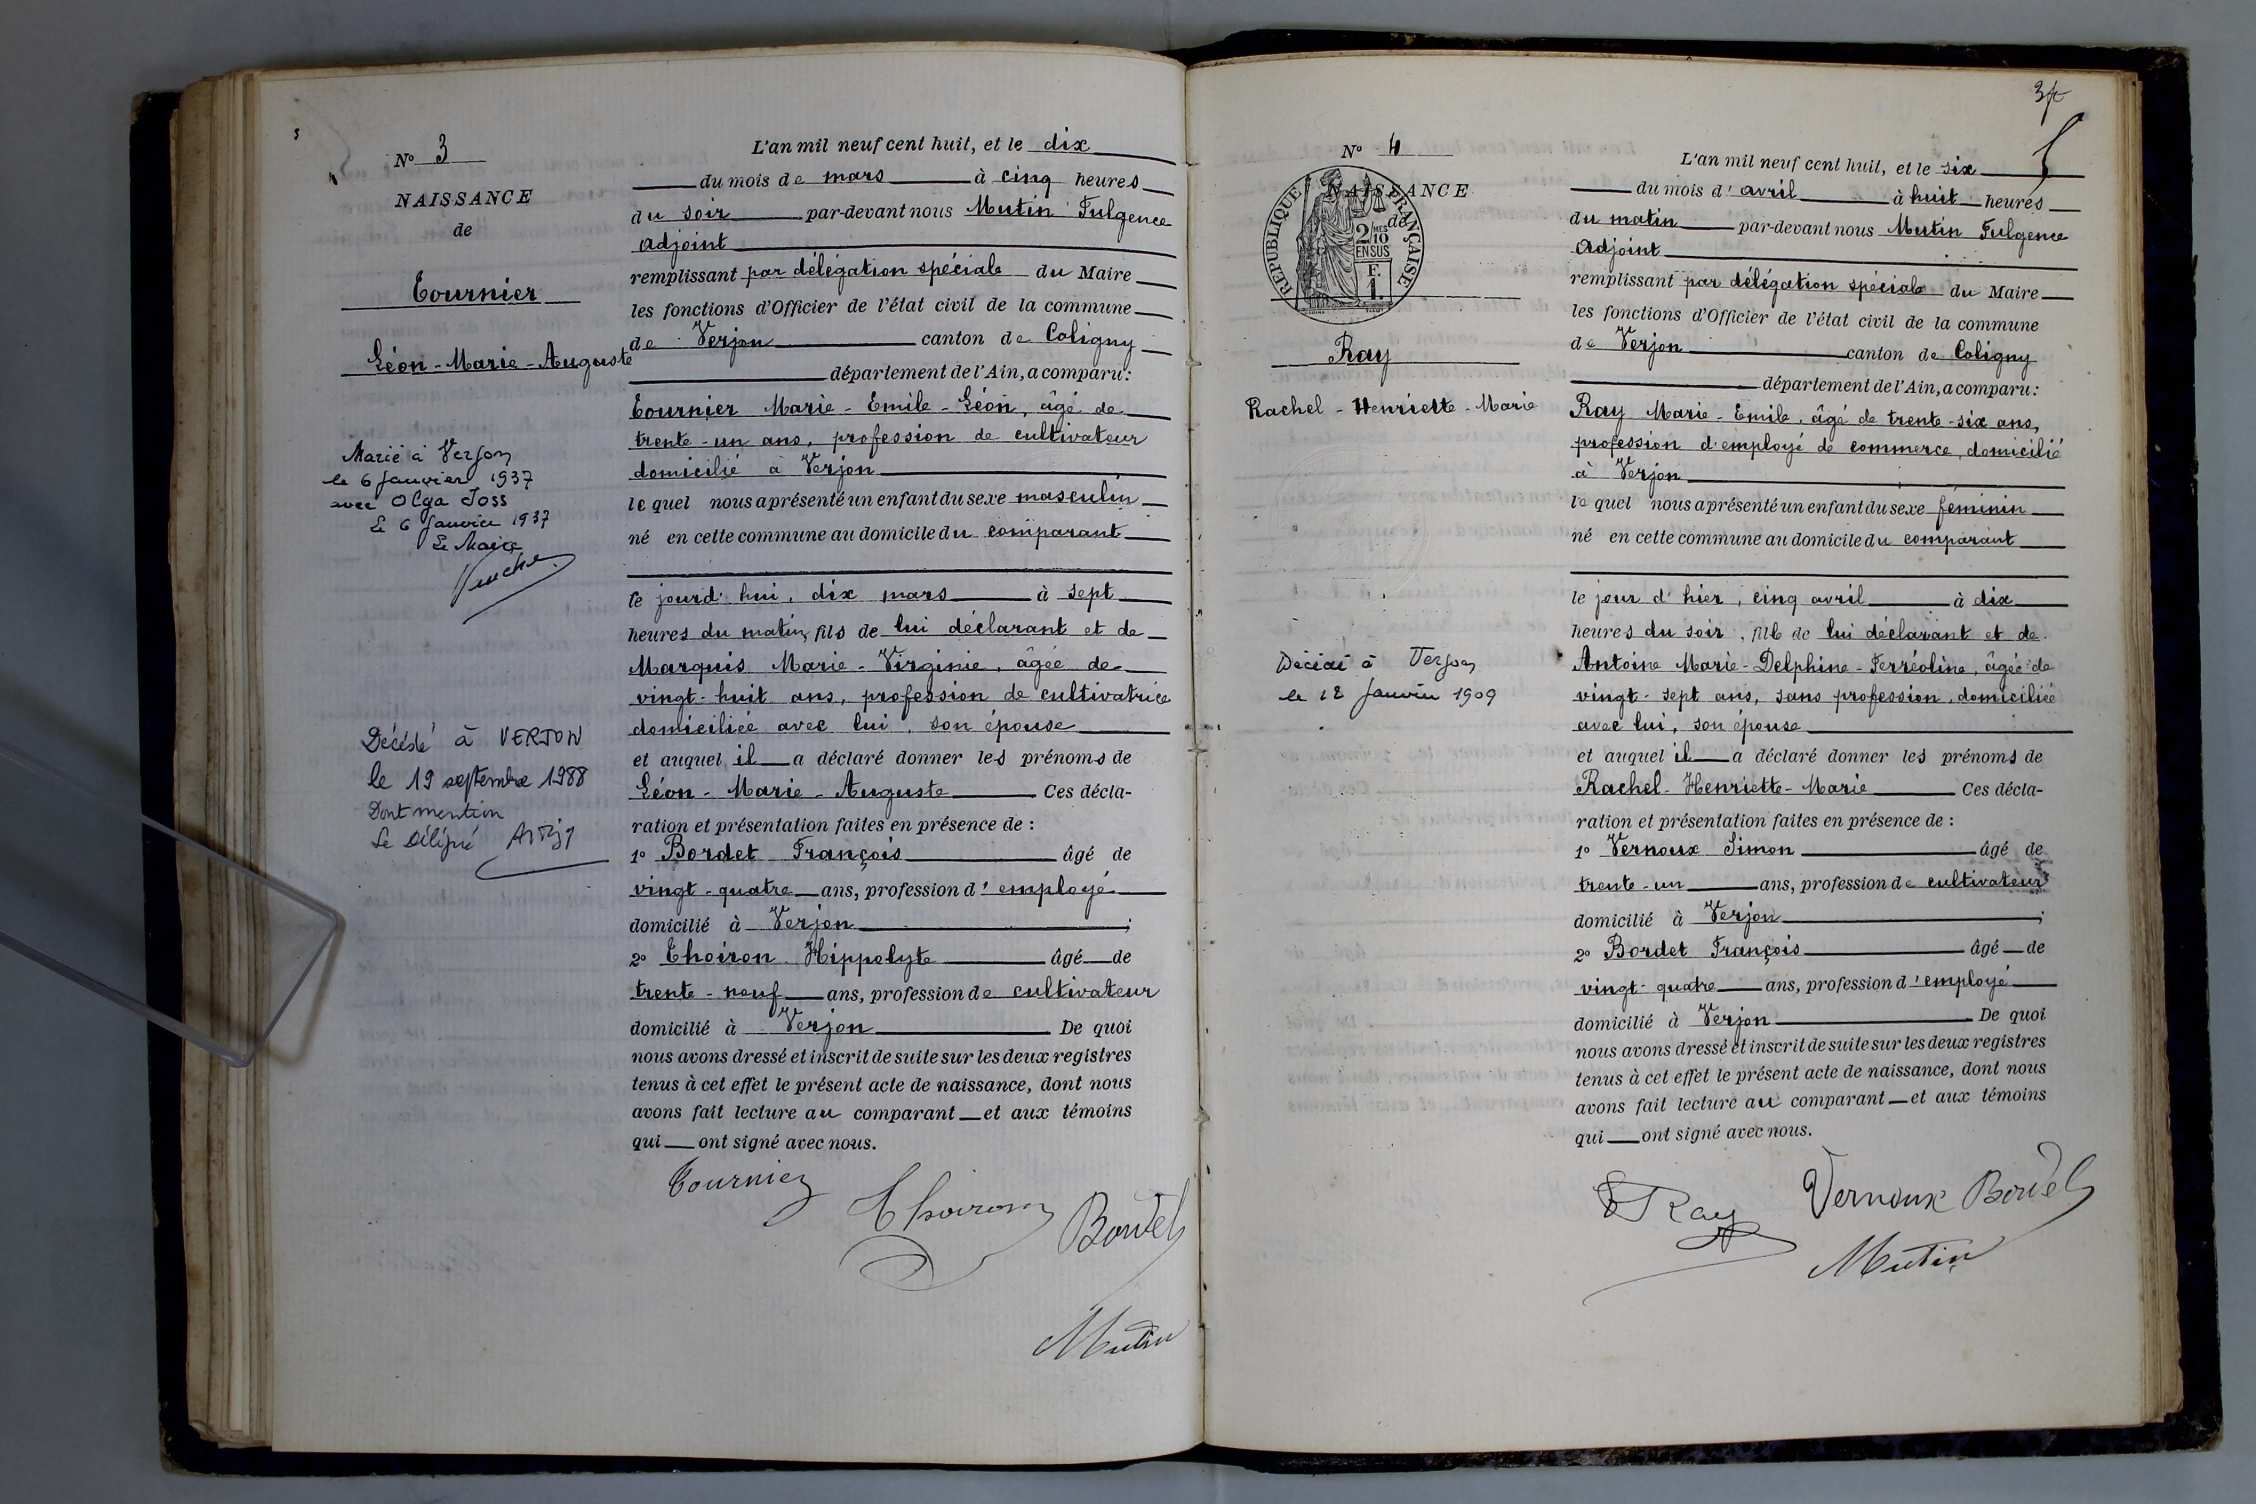 N° 3
NAISSANCE
de
Tournier
Léon-Marie-Auguste
Marié à Verjon
le 6 janvier 1937
avec Olga Joss
Le 6 janvier 1937
Le Maire
Décédé à VERJON
le 19 septembre 1988
Dont mention
Le Délégué
L'an mil neuf cent huit, et le dix
du mois de mars à cinq heures
du soir par-devant nous Mutin Fulgence
adjoint
remplissant par délégation spéciale du Maire
les fonctions d'Officier de l'état civil de la commune
de Verjon canton de Coligny
département de l'Ain, a comparu:
Tournier Marie-Emile-Léon, âgé de
trente-un ans, profession de cultivateur
domicilié à Verjon
lequel nous a présenté un enfant du sexe masculin
né en cette commune au domicile du comparant
le jourd'hui, dix mars à sept
heures du matin, fils de lui déclarant et de
Marquis Marie-Virginie, âgée de
vingt-huit ans, profession de cultivatrice
domiciliée avec lui, son épouse
et auquel il a déclaré donner les prénoms de
Léon-Marie-Auguste Ces décla-
ration et présentation faites en présence de :
1° Bordet François âgé de
vingt-quatre ans, profession d'employé
domicilié à Verjon ;
2° Thoiron Hippolyte âgé de
trente-neuf ans, profession de cultivateur
domicilié à Verjon De quoi
nous avons dressé et inscrit de suite sur les deux registres
tenus à cet effet le présent acte de naissance, dont nous
avons fait lecture au comparant et aux témoins
qui ont signé avec nous.
Tournier Thoiron Bordet
Mutin
N° 4
NAISSANCE
de
REPUBLIQUE FRANÇAISE
2 MES
10
EN SUS
F.
1.
Ray
Rachel-Henriette-Marie
Décédé à Verjon
le 12 janvier 1909
L'an mil neuf cent huit, et le six
du mois d'avril à huit heures
du matin par-devant nous Mutin Fulgence
Adjoint
remplissant par délégation spéciale du Maire
les fonctions d'Officier de l'état civil de la commune
de Verjon canton de Coligny
département de l'Ain, a comparu:
Ray Marie-Emile, âgé de trente-six ans,
profession d'employé de commerce, domicilié
à Verjon
lequel nous a présenté un enfant du sexe féminin
né en cette commune au domicile du comparant
le jour d'hier, cinq avril à dix
heures du soir, fille de lui déclarant et de
Antoine Marie-Delphine-Ferréoline, âgée de
vingt-sept ans, sans profession, domiciliée
avec lui, son épouse
et auquel il a déclaré donner les prénoms de
Rachel-Henriette-Marie Ces décla-
ration et présentation faites en présence de :
1° Vernoux Simon âgé de
trente-un ans, profession de cultivateur
domicilié à Verjon ;
2° Bordet François âgé de
vingt-quatre ans, profession d'employé
domicilié à Verjon De quoi
nous avons dressé et inscrit de suite sur les deux registres
tenus à cet effet le présent acte de naissance, dont nous
avons fait lecture au comparant et aux témoins
qui ont signé avec nous.
Ray Vernoux Bordet
Mutin